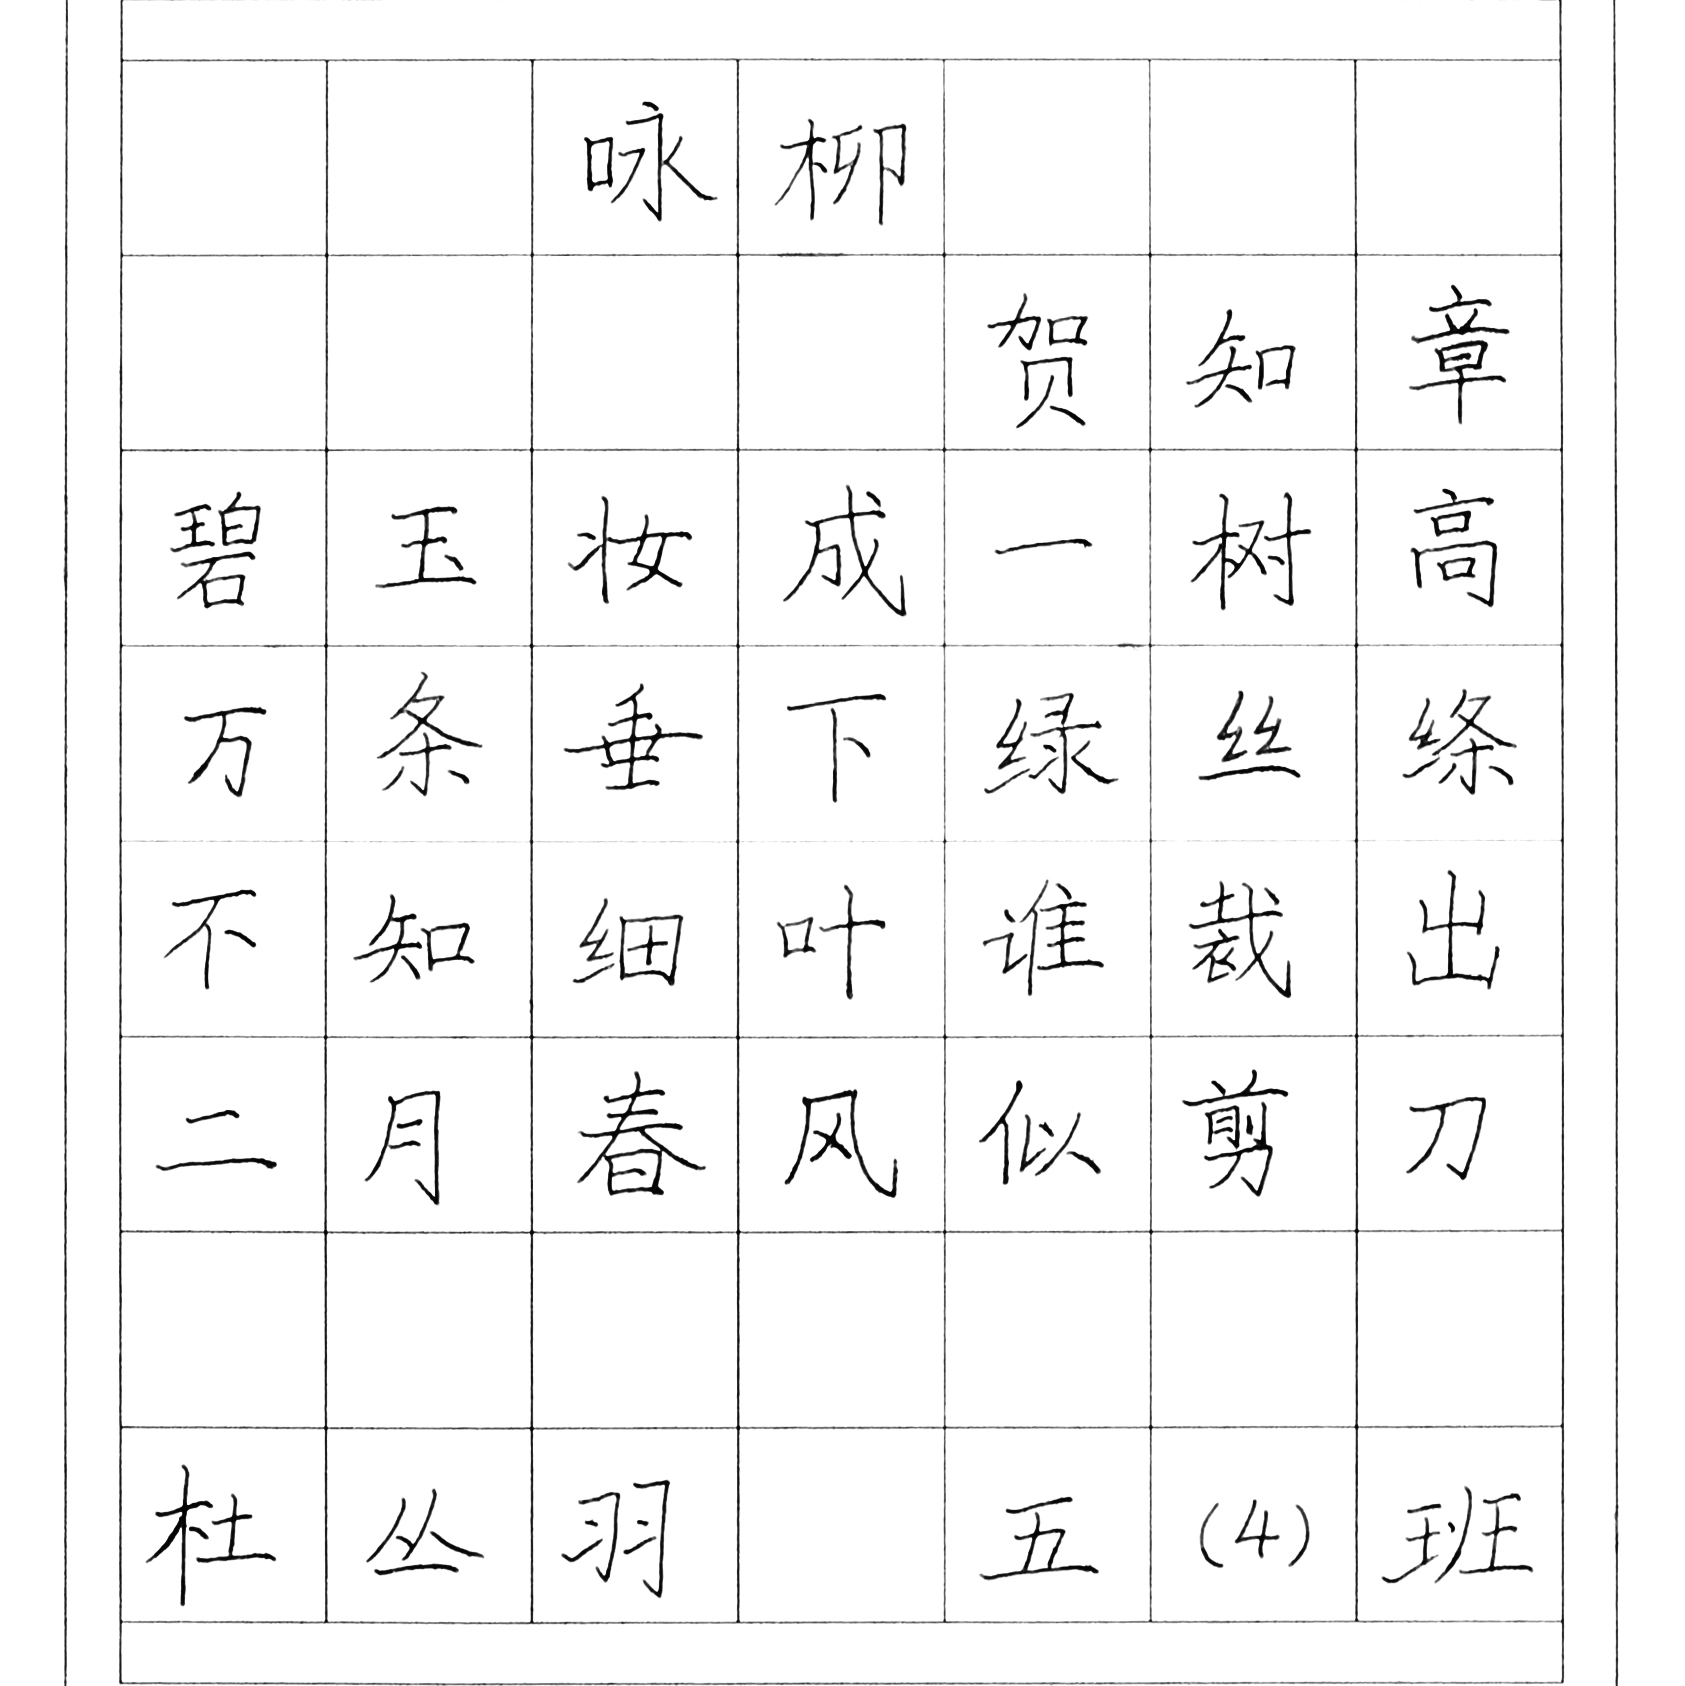 咏柳
贺知章
碧玉妆成一树高
万条垂下绿丝绦
不知细叶谁裁出
二月春风似剪刀
杜丛羽 五(4)班